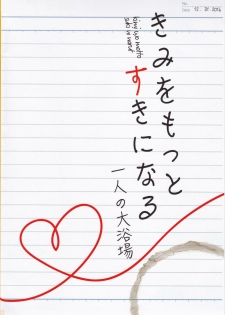 きみをもっと
すきになる
kimi wo motto
suki ni naru
一人の大浴場